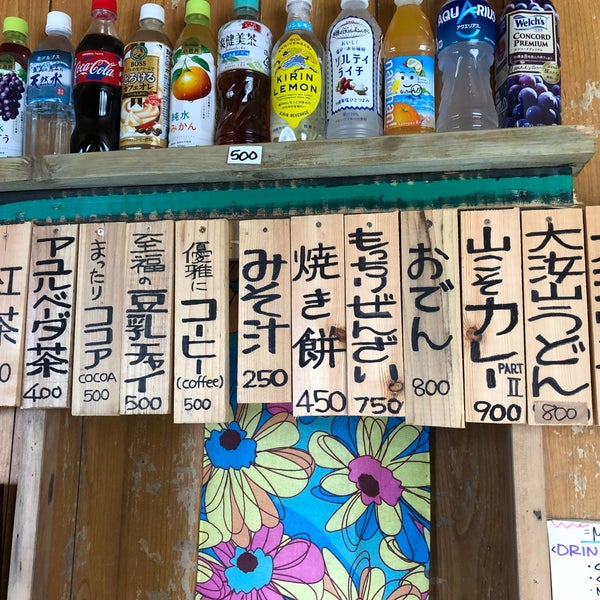 天然水
Coca-Cola
BOSS
とろける
カフェオレ
純水
みかん
健美茶
KIRIN
LEMON
ソルティ
ライチ
AQUARIUS
アクエリアス
Welch's
CONCORD
PREMIUM
500
紅茶
アユルベーダ茶
400
まったり ココア
COCOA
500
至福の豆乳チャイ
500
優雅に コーヒー
(coffee)
500
みそ汁
250
焼き餅
450
もっちりぜんざい
750
おでん
800
山こそカレー
PART
II
900
大汝山うどん
800
DRIN